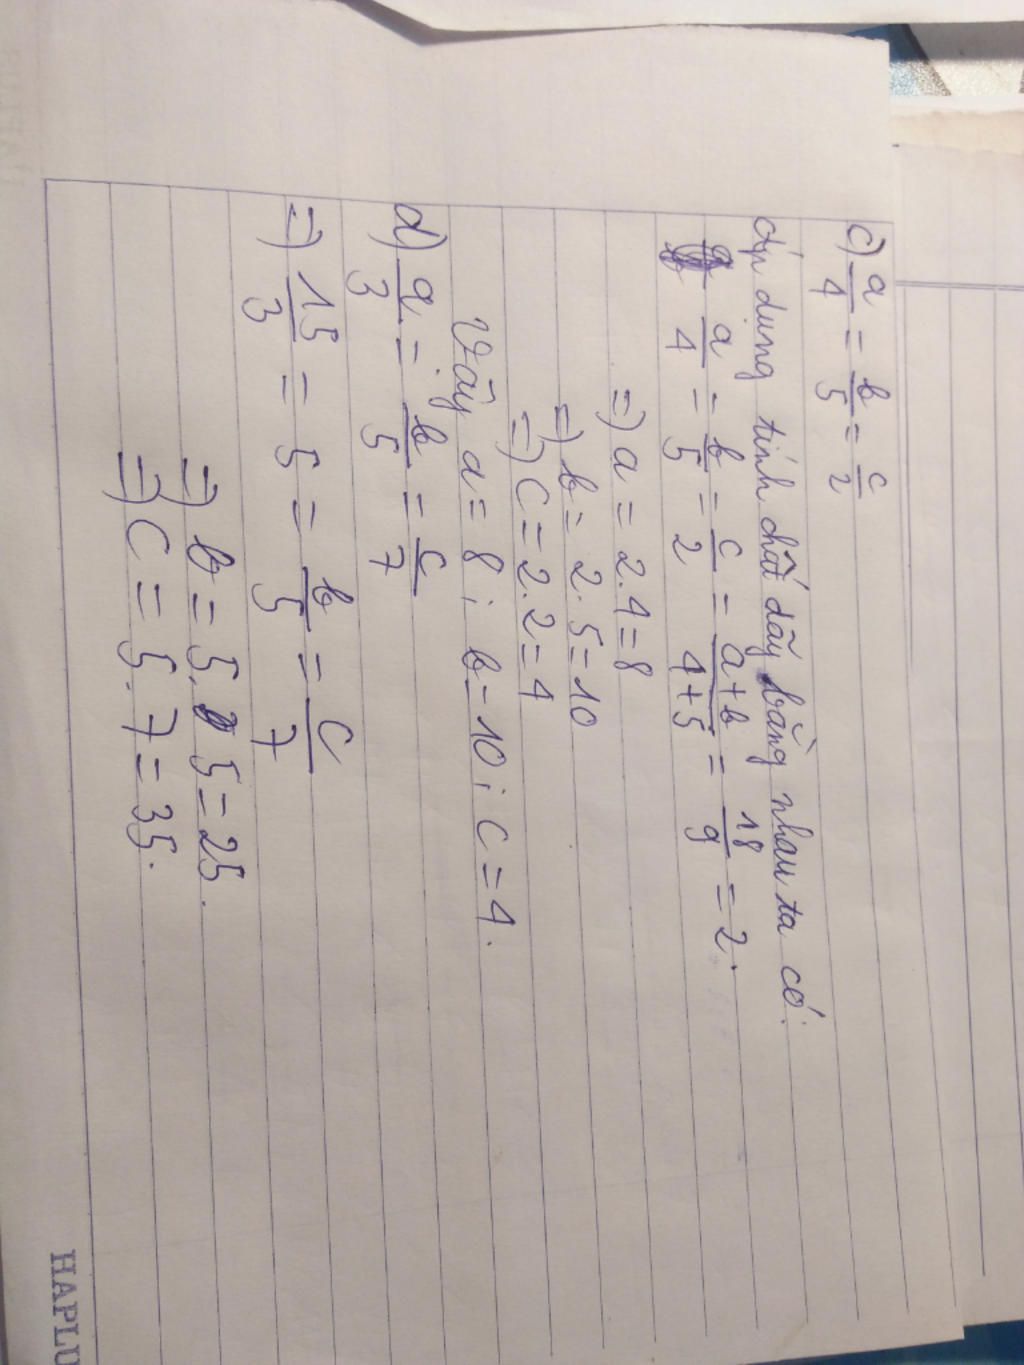 c) a/4 = b/5 = c/2
Áp dụng tính chất dãy bằng nhau ta có:
a/4 = b/5 = c/2 = a+b/4+5 = 18/9 = 2.
=) a = 2.4 = 8
=) b = 2.5 = 10
=) C = 2.2 = 4
Vậy a = 8; b = 10; c = 4.
d) a/3 = b/5 = c/7
=) 15/3 = 5 = b/5 = c/7
=) b = 5.5 = 25.
=) C = 5.7 = 35.
HAPLU